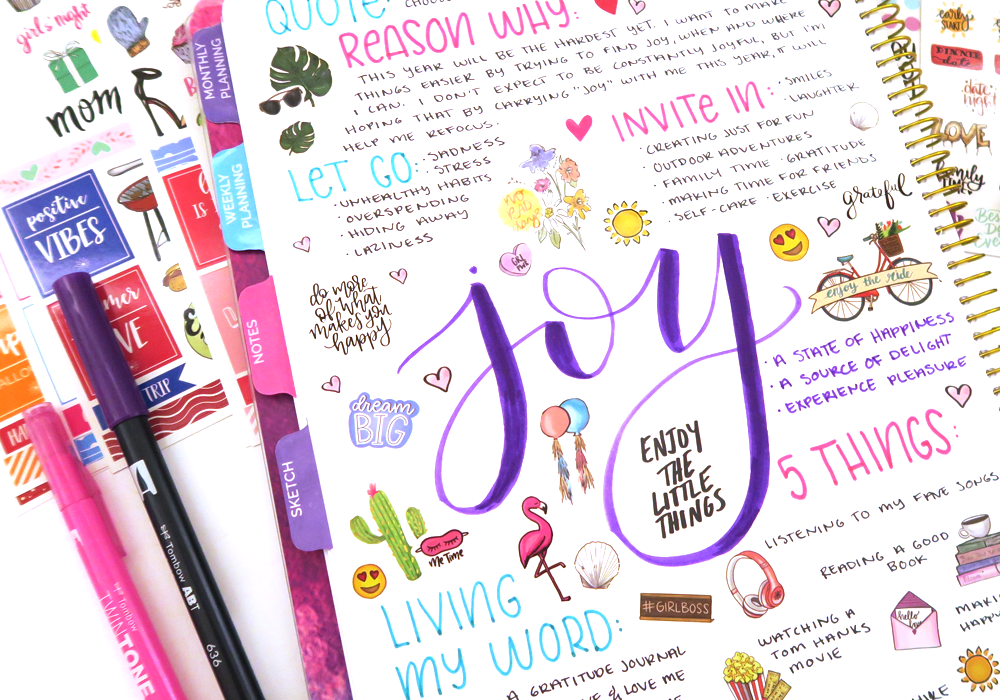 QUOTE:
REASON WHY:
THIS YEAR WILL BE THE HARDEST YET. I WANT TO MAKE
THINGS EASIER BY TRYING TO FIND JOY, WHEN AND WHERE
I CAN. I DON'T EXPECT TO BE CONSTANTLY JOYFUL, BUT I'M
HOPING THAT BY CARRYING "JOY" WITH ME THIS YEAR, IT WILL
HELP ME REFOCUS.
LET GO:
· SADNESS
· STRESS
· UNHEALTHY HABITS
· OVERSPENDING
· HIDING AWAY
· LAZINESS
INVITE IN:
· SMILES
· LAUGHTER
· CREATING JUST FOR FUN
· OUTDOOR ADVENTURES
· FAMILY TIME · GRATITUDE
· MAKING TIME FOR FRIENDS
· SELF-CARE · EXERCISE
grateful
enjoy the ride
do more
of what
makes you
happy
joy
· A STATE OF HAPPINESS
· A SOURCE OF DELIGHT
· EXPERIENCE PLEASURE
dream
BIG
ENJOY
THE
LITTLE
THINGS
5 THINGS:
LISTENING TO MY FAVE SONGS
READING A GOOD
BOOK
WATCHING A
TOM HANKS
MOVIE
hello
me Time
#GIRLBOSS
LIVING
MY WORD:
A GRATITUDE JOURNAL
& LOVE ME
MONTHLY
PLANNING
WEEKLY
PLANNING
NOTES
SKETCH
girl's night
mom
positive
VIBES
TRIP
early
START
DINNER
date
date
night
LOVE
family
time
Tombow
TWINTONE
Tombow ABT
636